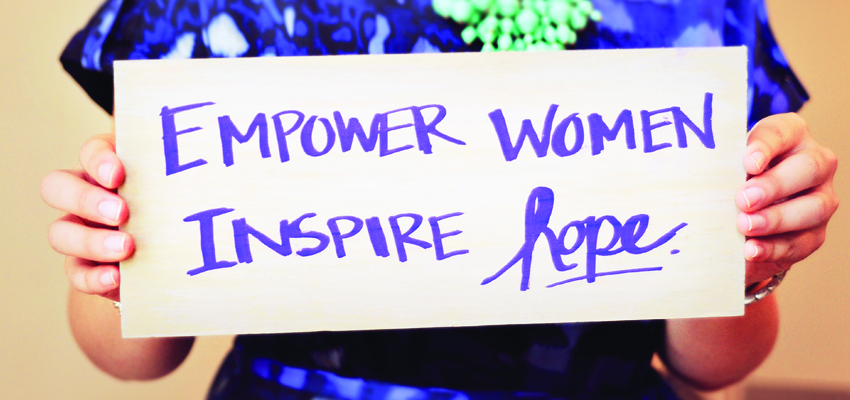 EMPOWER WOMEN
INSPIRE hope.